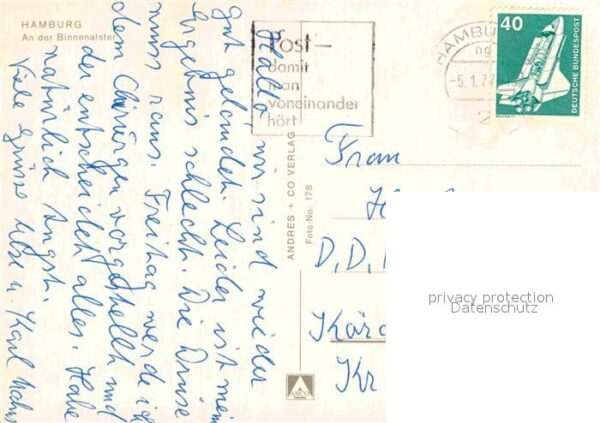 HAMBURG
An der Binnenalster
Hallo, wir sind wieder
gut gelandet. Leider ist mein
Ergebnis schlecht. Die Drüse
muss raus. Freitag werde ich
dem Chirurgen vorgestellt und
der entscheidet alles. Habe
natürlich Angst.
Viele Grüsse Ilse u. Karl
Post –
damit
man
voneinander
hört
HAMBU
-5.1.77
2
40
DEUTSCHE BUNDESPOST
ANDRES + CO VERLAG
Foto-No. 178
ANCO
Frau
D.D.
Kr
privacy protection
Datenschutz